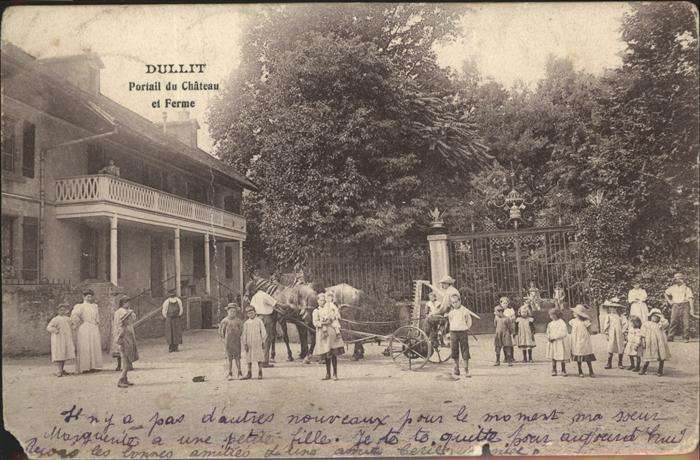 DULLIT
Portail du Château
et Ferme
Il n'y a pas d'autres nouveaux pour le moment ma sœur
Marguerite a une petite fille. Je te te quitte pour aujourd'hui
Reçois les bonnes amitiés de